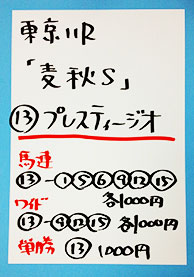 東京11R
「麦秋S」
⑬プレスティージオ
馬連
⑬-①⑤⑥⑨⑫⑮
各1000円
ワイド
⑬-⑨⑫⑮ 各1000円
単勝 ⑬ 1000円